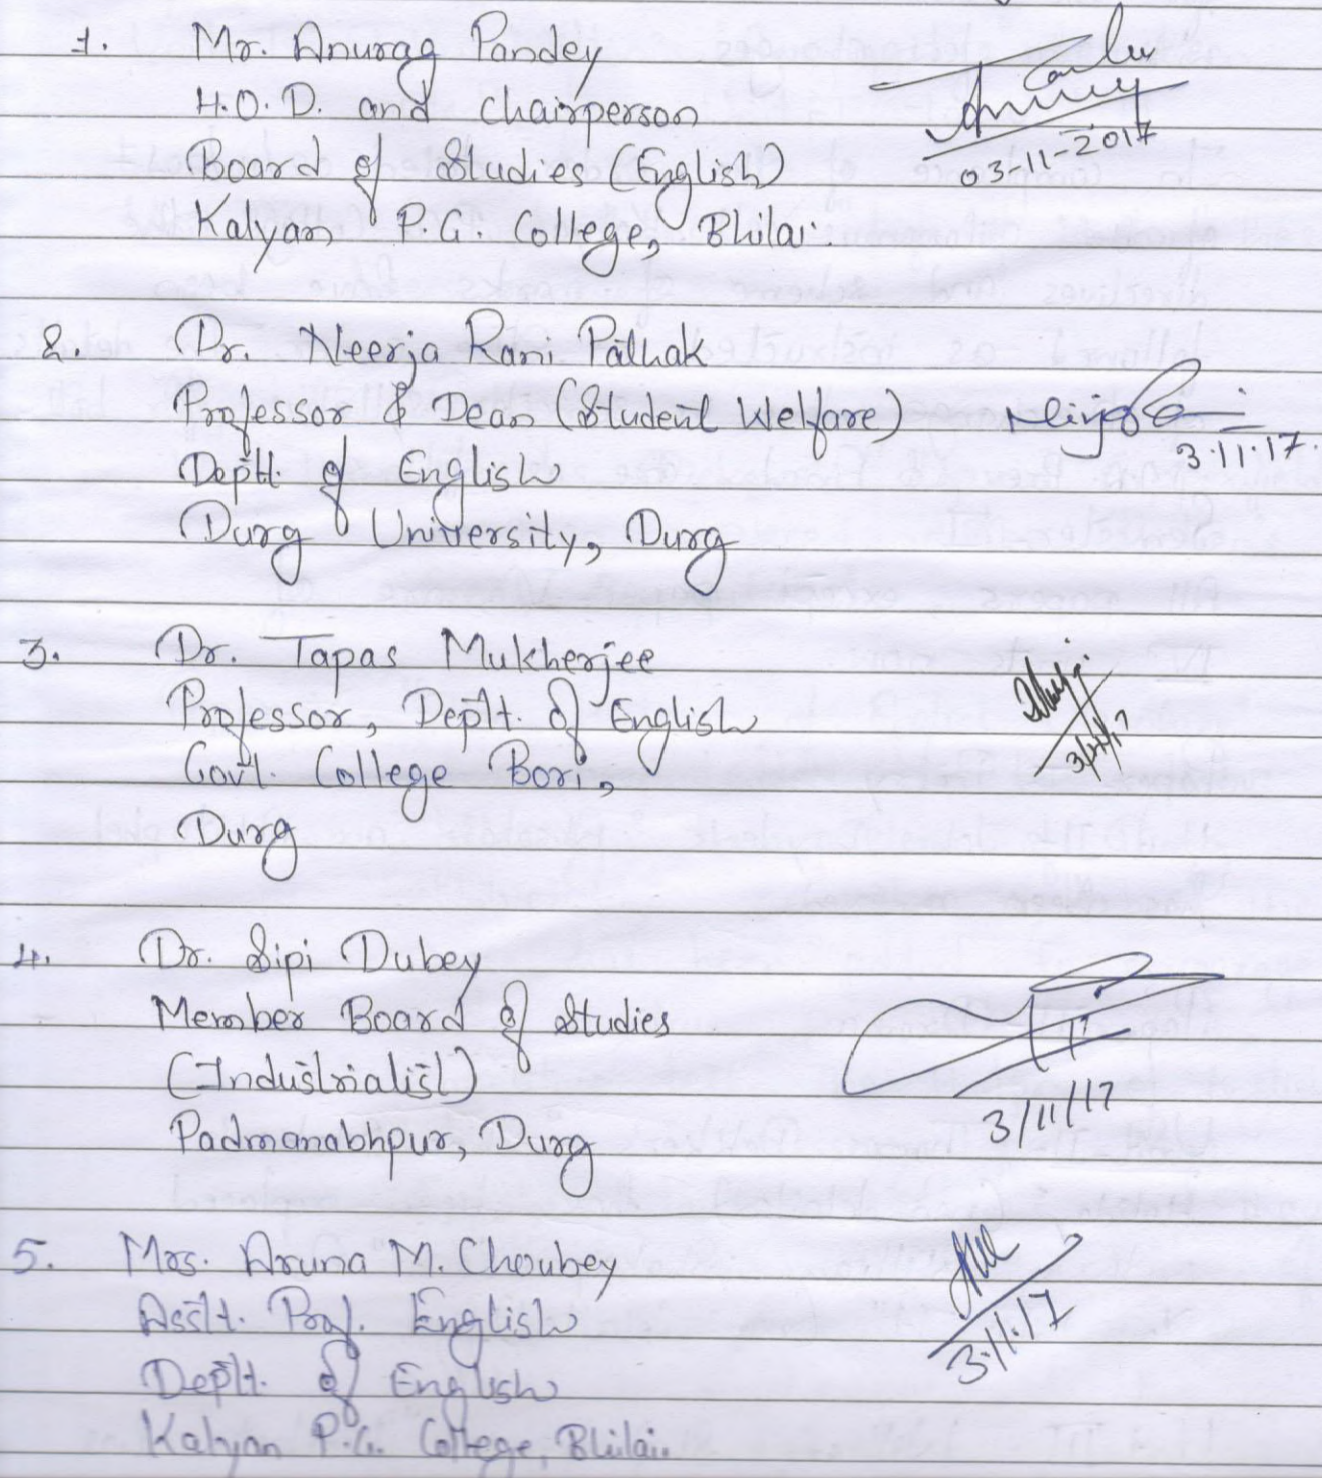 1. Mr. Anurag Pandey
H.O.D. and Chairperson
Board of Studies (English)
Kalyan P.G. College, Bhilai.
03-11-2017
2. Dr. Neerja Rani Pathak
Professor & Dean (Student Welfare)
3.11.17.
Deptt. of English
Durg University, Durg
3. Dr. Tapas Mukherjee
Professor, Deptt. of English
Govt. College Bori,
Durg
3/11/17
4. Dr. Sipi Dubey
Member Board of Studies
(Industrialist)
Padmanabhpur, Durg
3/11/17
5. Mrs. Aruna M. Choubey
Asstt. Prof. English
Deptt. of English
Kalyan P.G. College, Bhilai.
3.11.17